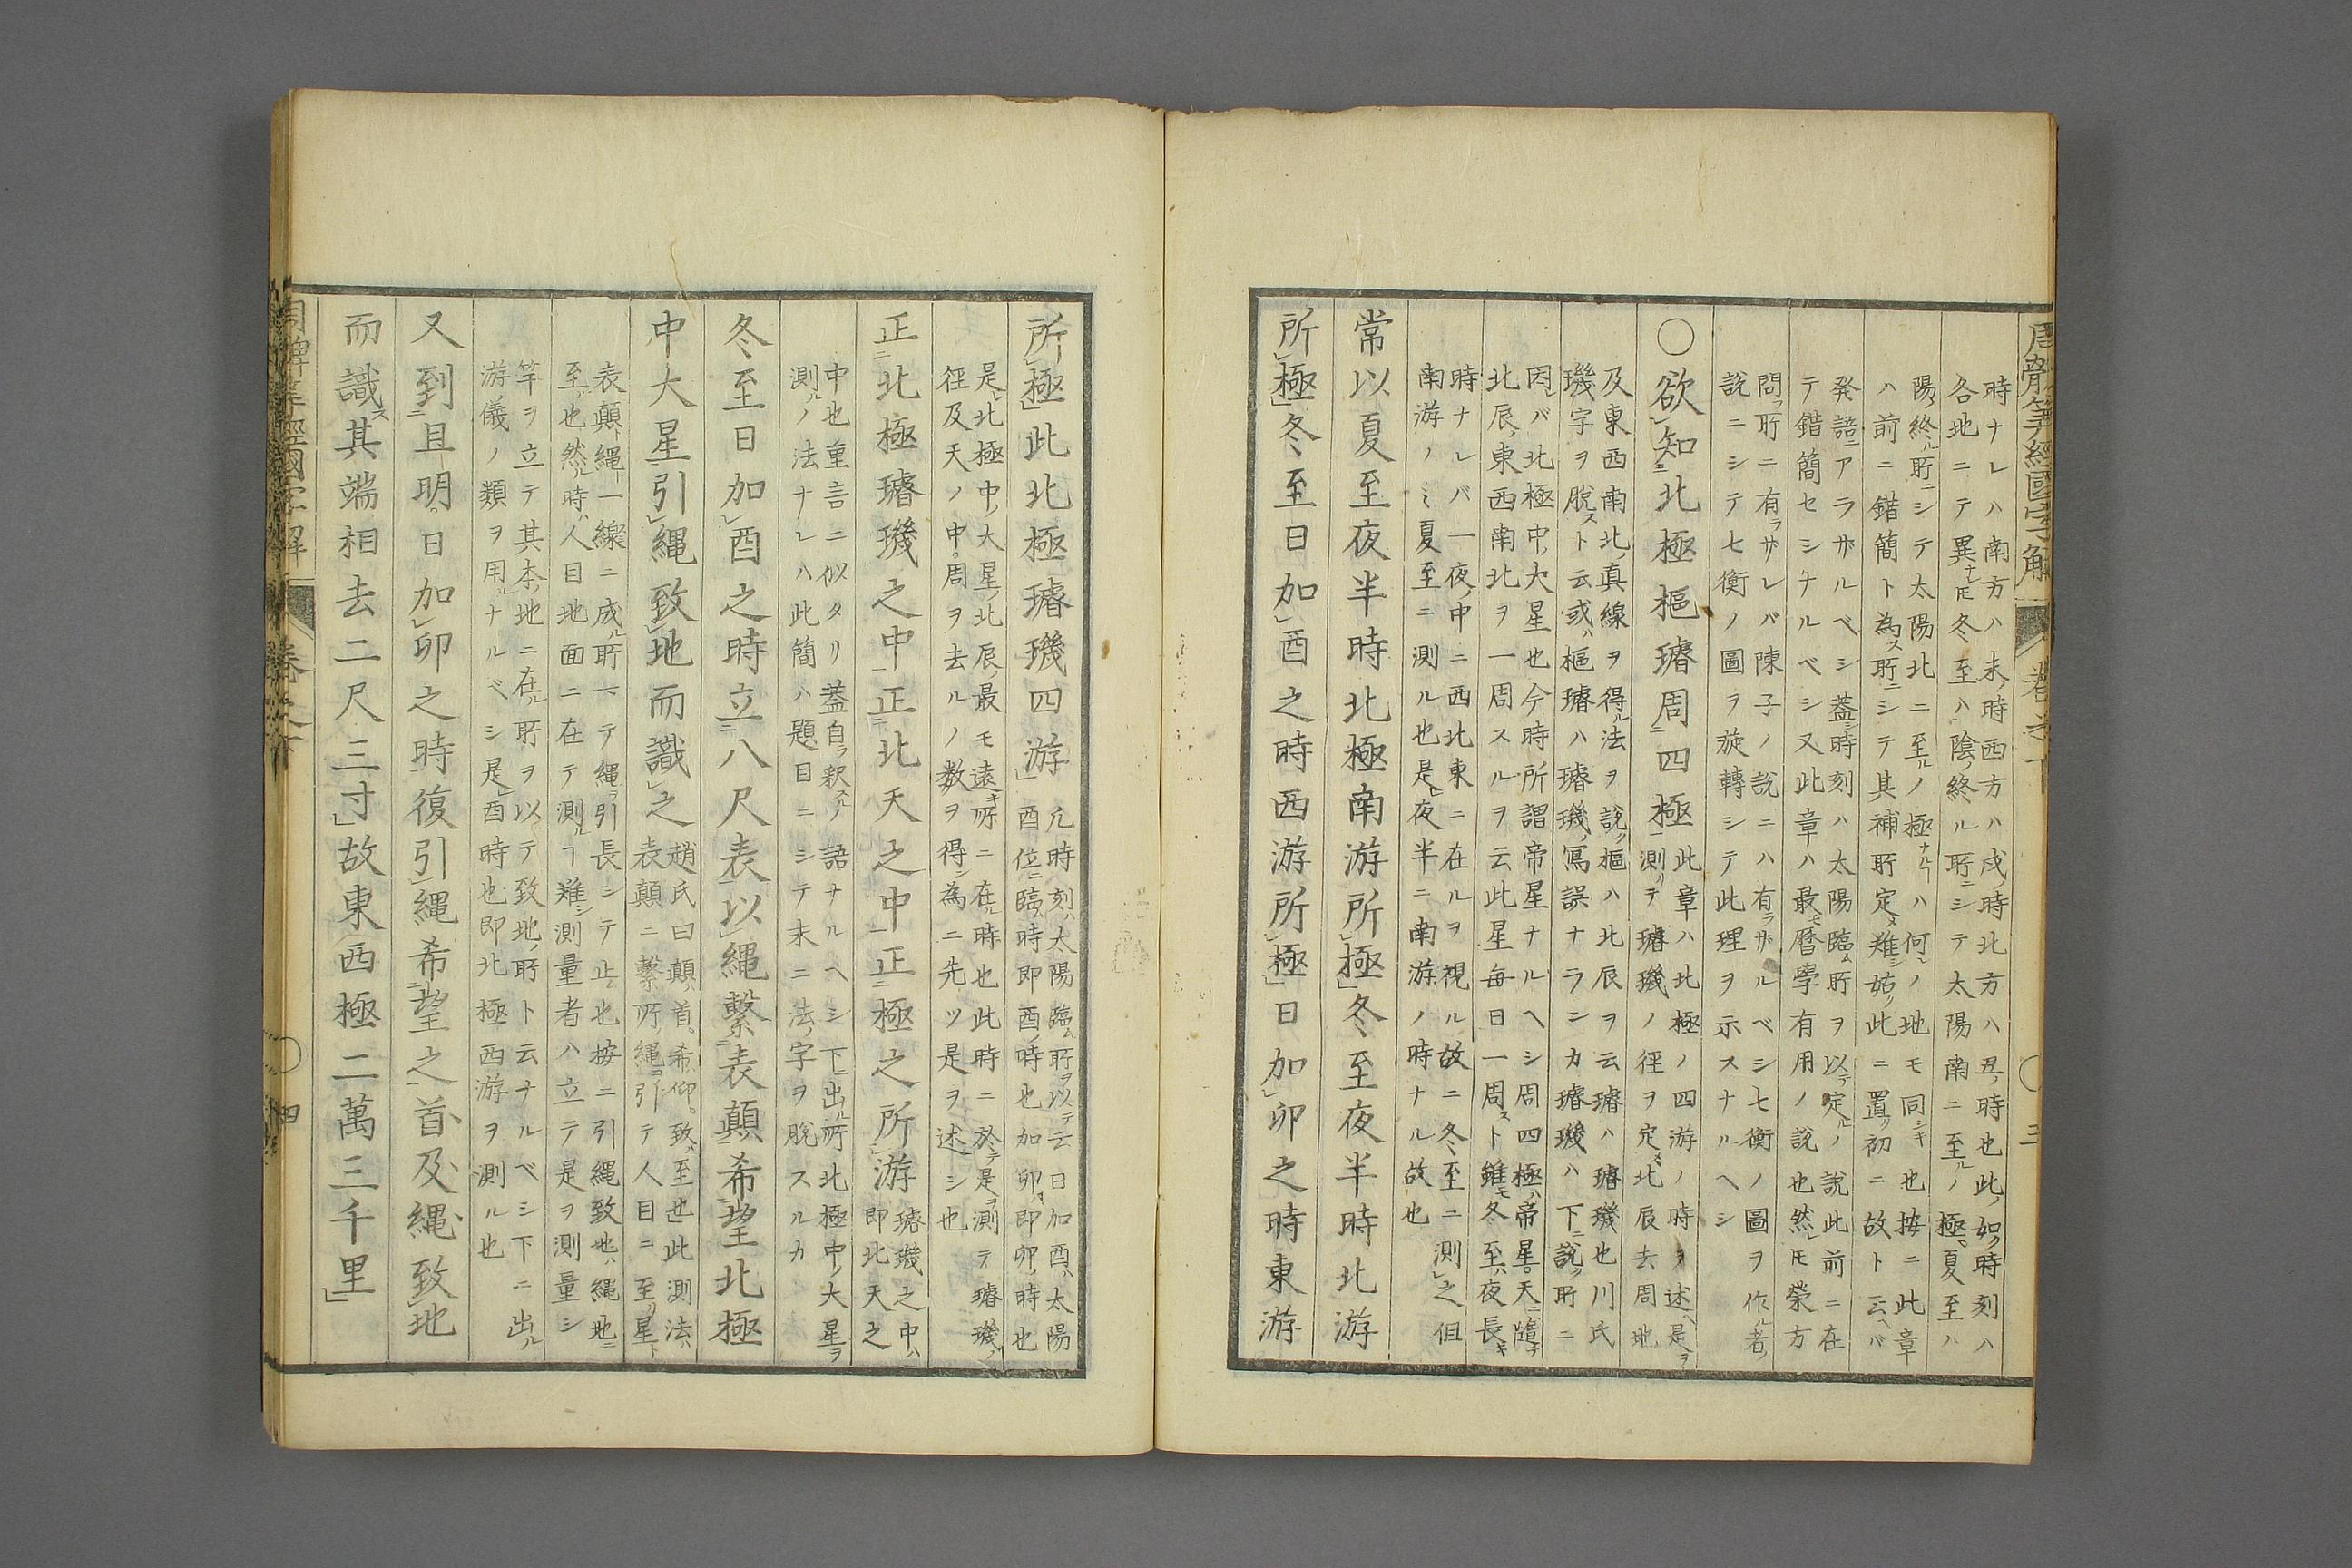 周髀算經國字解
卷之下
○三
時ナレハ南方ハ未ノ時西方ハ戌ノ時北方ハ丑ノ時也此ノ如ク時刻ハ
各地ニテ異ナレ𪜈冬至ハ陰ノ終ル所ニシテ太陽南ニ至ルノ極ミ夏至ハ
陽ノ終ル所ニシテ太陽北ニ至ルノ極ナルヿハ何レノ地モ同シキ也按ニ此章
ハ前ニ錯簡ト為ス所ニシテ其補所定メ難シ姑ク此ニ置ク初ニ故ト云ヘバ
発語ニアラザルベシ蓋シ時刻ハ太陽臨ム所ヲ以テ定ルノ説此前ニ在
テ錯簡セシナルベシ又此章ハ最モ暦學有用ノ説也然レ𪜈榮方
問フ所ニ有ラザレバ陳子ノ説ニハ有ラザルベシ七衡ノ圖ヲ作ル者ノ
説ニシテ七衡ノ圖ヲ旋轉シテ此理ヲ示スナルヘシ
○欲知北極樞璿周四極
此章ハ北極ノ四游ノ時ヲ述ヘ是ヲ
測リテ璿璣ノ徑ヲ定メ北辰去周地
及東西南北ノ真線ヲ得ル法ヲ説ク樞ハ北辰ヲ云璿ハ璿璣也川氏
璣字ヲ脱スト云或ハ樞璿ハ璿璣ノ寫誤ナランカ璿璣ハ下ニ説ク所ニ
因レバ北極中ノ大星也今時所謂帝星ナルヘシ周四極ハ帝星天ニ隨テ
北辰ノ東西南北ヲ一周スルヲ云此星毎日一周スト雖モ冬至ハ夜長キ
時ナレバ一夜ノ中ニ西北東ニ在ルヲ視ル故ニ冬至ニ測之但
南游ノミ夏至ニ測ル也是レ夜半ニ南游ノ時ナル故也
常以夏至夜半時北極南游所極冬至夜半時北游
所極冬至日加酉之時西游所極日加卯之時東游
所極此北極璿璣四游
凡時刻ハ太陽臨ム所ヲ以テ云日加酉ハ太陽
酉位ニ臨ム時即酉ノ時也加卯ハ即卯ノ時也
是レ北極中ノ大星ノ北辰ノ最モ遠キ所ニ在ル時也此時ニ於テ是ヲ測テ璿璣ノ
徑及天ノ中周ヲ去ルノ数ヲ得ン為ニ先ツ是ヲ述シ也
正北極璿璣之中正北天之中正極之所游
璿璣之中ハ
即北天之
中也重言ニ似タリ蓋自ラ釈スルノ語ナルヘシ下ニ出ル所北極中ノ大星ヲ
測ルノ法ナレハ此簡ハ題目ニシテ末ニ法ノ字ヲ脱スルカ
冬至日加酉之時立八尺表以繩繫表顛希望北極
中大星引繩致地而識之
趙氏曰顛ハ首希ハ仰致ハ至也此測法ハ
表顛ニ繫所ノ繩ヲ引テ人目ニ至リ星ト
表顛ト繩ト一線ニ成ル所ニテ繩ヲ引長シテ止也按ニ引繩致地ハ繩地ニ
至也然ル時ハ人目地面ニ在テ測ルヿ難シ測量者ハ立テ是ヲ測量シ
竿ヲ立テ其本ノ地ニ在ル所ヲ以テ致地ノ所ト云ナルベシ下ニ出ル
游儀ノ類ヲ用ルナルベシ是レ酉時也即北極西游ヲ測ル也
又到旦明日加卯之時復引繩希望之首及繩致地
而識其端相去二尺三寸故東西極二萬三千里
周髀算經國字解
卷之下
○四